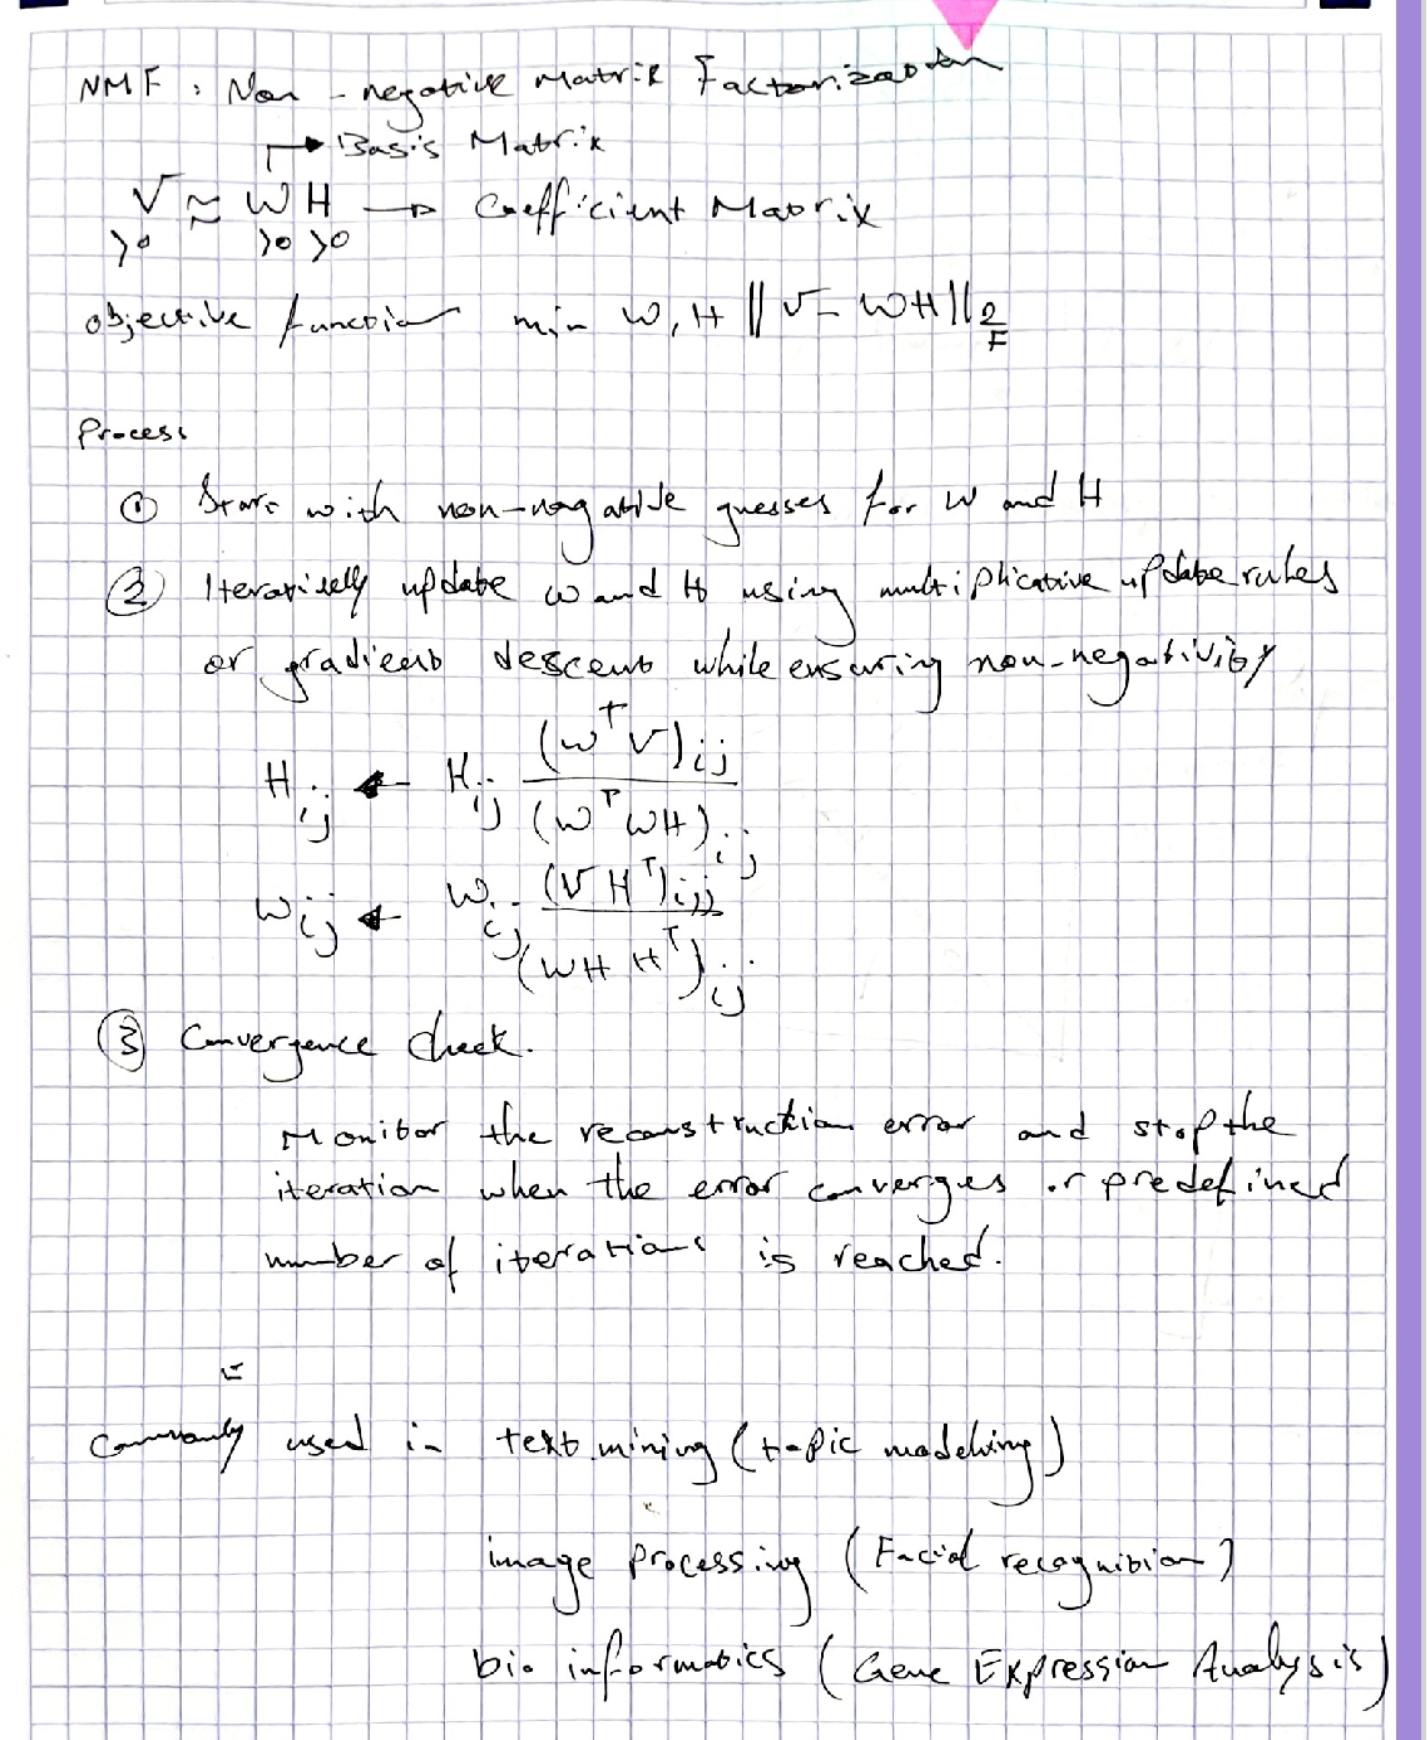 NMF : Non-negative Matrix Factorization
Basis Matrix
V ≈ W H → Coefficient Matrix
>0 >0 >0
objective function min W, H ||V - WH||2
F
Process
① Start with non-negative guesses for W and H
② Iteratively update W and H using multiplicative update rules
or gradient descent while ensuring non-negativity
(W^T V)ij
H ij ← H ij
(W^T WH) ij
W ij ← W ij (V H^T) ij
(WH H^T) ij
③ Convergence check.
Monitor the reconstruction error and stop the
iteration when the error converges or predefined
number of iterations is reached.
Commonly used in text mining (topic modelving)
image processing (Facial recognition)
bio informatics (Gene Expression Analysis)